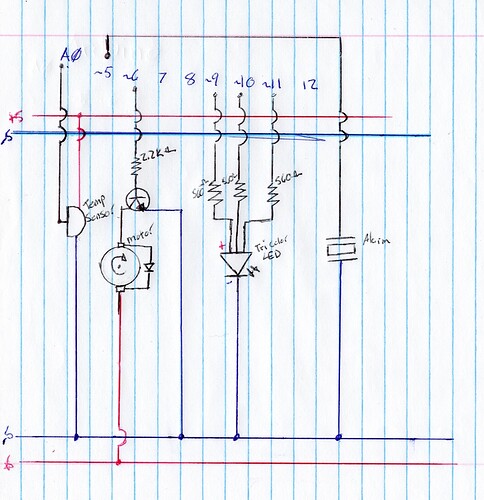 AØ
~5 ~6 7 8 ~9 ~10 ~11 12
2.2kΩ
560Ω
560Ω
Temp
Sensor
motor
+
Tricolor
LED
-
Alarm